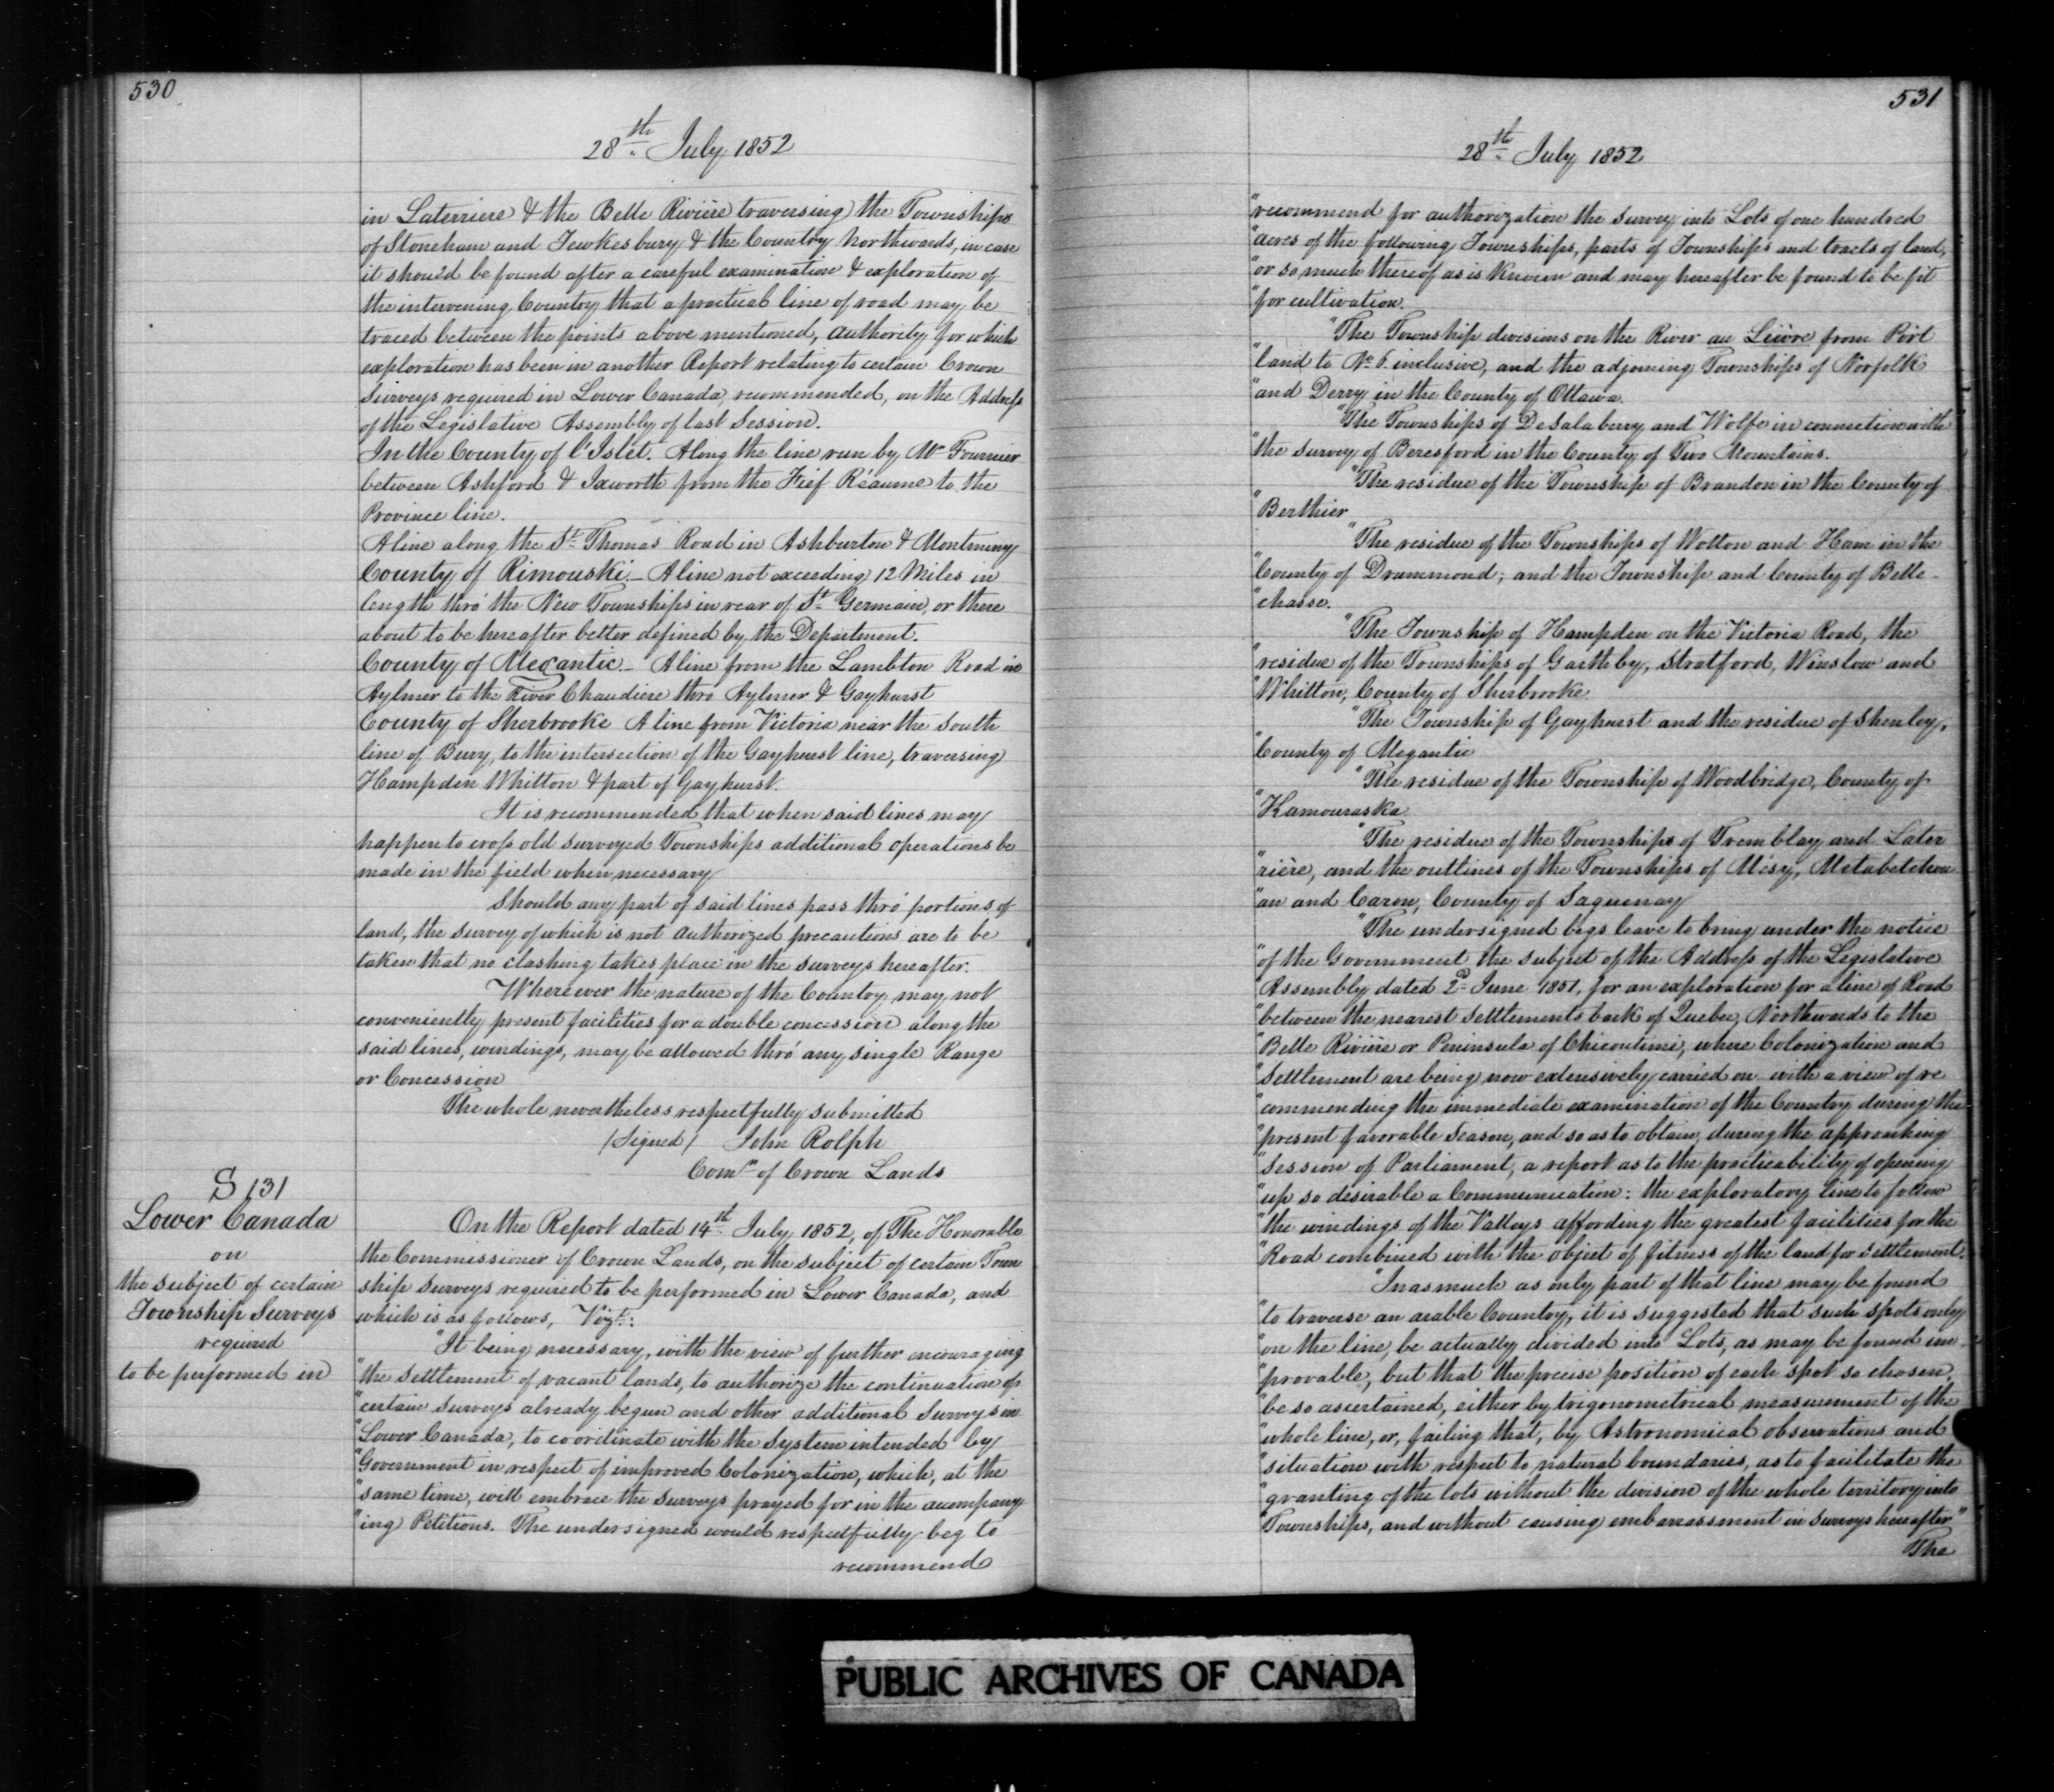 530
28th July 1852
in Laterriere & the Belle Rivière traversing the Townships
of Stoneham and Tewkesbury & the Country Northwards, in case
it should be found after a careful examination & exploration of
the intervening Country that a practical line of road may be
traced between the points above mentioned, authority for which
exploration has been in another Report relating to certain Crown
Surveys required in Lower Canada, recommended, on the Address
of the Legislative Assembly of last Session.
In the County of l'Islet. Along the line run by Mr Fournier
between Ashford & Ixworth from the Fief Réaume to the
Province line.
A line along the St. Thomas Road in Ashburton & Montminy
County of Rimouski. - A line not exceeding 12 Miles in
length thro' the New Townships in rear of St. Germain, or there
about to be hereafter better defined by the Department.
County of Megantic. - A line from the Lambton Road in
Aylmer to the River Chaudiere thro' Aylmer & Gayhurst
County of Sherbrooke A line from Victoria near the South
line of Bury, to the intersection of the Gayhurst line, traversing
Hampden Whitton & part of Gayhurst.
It is recommended that when said lines may
happen to cross old surveyed Townships additional operations be
made in the field when necessary
Should any part of said lines pass thro' portions of
land, the survey of which is not authorized precautions are to be
taken that no clashing takes place in the surveys hereafter.
Wherever the nature of the Country may not
conveniently present facilities for a double concession along the
said lines, windings, may be allowed thro' any single Range
or Concession
The whole nevertheless respectfully submitted
(Signed) John Rolph
Comr of Crown Lands
S 131
Lower Canada
on
the subject of certain
Township Surveys
required
to be performed in
On the Report dated 14st July 1852, of The Honorable
the Commissioner of Crown Lands, on the subject of certain Town
ship surveys required to be performed in Lower Canada, and
which is as follows, Vizt:
"It being necessary, with the view of further encouraging
"the settlement of vacant lands, to authorize the continuation of
"certain surveys already begun and other additional Surveys in
"Lower Canada, to coordinate with the System intended by
"Government in respect of improved Colonization, which, at the
"same time, will embrace the surveys prayed for in the accompany
"ing Petitions. The undersigned would respectfully beg to
recommend
531
28th July 1852
"recommend for authorization the survey into Lots of one hundred
"acres of the following Townships, parts of Townships and tracts of land,
"or so much thereof as is Known and may hereafter be found to be fit
"for cultivation.
"The Township divisions on the River au Lièvre from Port
"land to No. 6 inclusive, and the adjoining Townships of Norfolk
"and Derry in the County of Ottawa.
"The Townships of DeSalaberry and Wolfe in connection with
"the survey of Beresford in the County of Two Mountains.
"The residue of the Township of Brandon in the County of
"Berthier
"The residue of the Townships of Wotton and Ham in the
"County of Drummond; and the Township and County of Belle-
"chasse.
"The Township of Hampden on the Victoria Road, the
"residue of the Townships of Garthby, Stratford, Winslow and
"Whitton, County of Sherbrooke
"The Township of Gayhurst and the residue of Shenley,
"County of Megantic
"The residue of the Township of Woodbridge, County of
"Kamouraska
"The residue of the Townships of Tremblay and Later
"rière, and the outlines of the Townships of Mésy, Metabetchou
"an and Caron, County of Saguenay
"The undersigned begs leave to bring under the notice
"of the Government the subject of the Address of the Legislative
"Assembly dated 2d June 1851, for an exploration for a line of Road
"between the nearest settlements back of Quebec, Northwards to the
"Belle Rivière or Peninsula of Chicoutimi, where Colonization and
"Settlement are being now extensively carried on with a view of re
"commending the immediate examination of the Country during the
"present favorable Season, and so as to obtain, during the approaching
"Session of Parliament, a report as to the practicability of opening
"up so desirable a Communication: the exploratory line to follow
"the windings of the Valleys affording the greatest facilities for the
"Road combined with the object of fitness of the land for settlement.
"Inasmuch as only part of that line may be found
"to traverse an arable Country, it is suggested that such spots only
"on the line, be actually divided into Lots, as may be found im-
"provable, but that the precise position of each spot so chosen,
"be so ascertained, either by trigonometrical measurement of the
"whole line, or, failing that, by Astronomical observations and
"situation with respect to natural boundaries, as to facilitate the
"granting of the lots without the division of the whole territory into
"Townships, and without causing embarrassment in surveys hereafter"
The
PUBLIC ARCHIVES OF CANADA